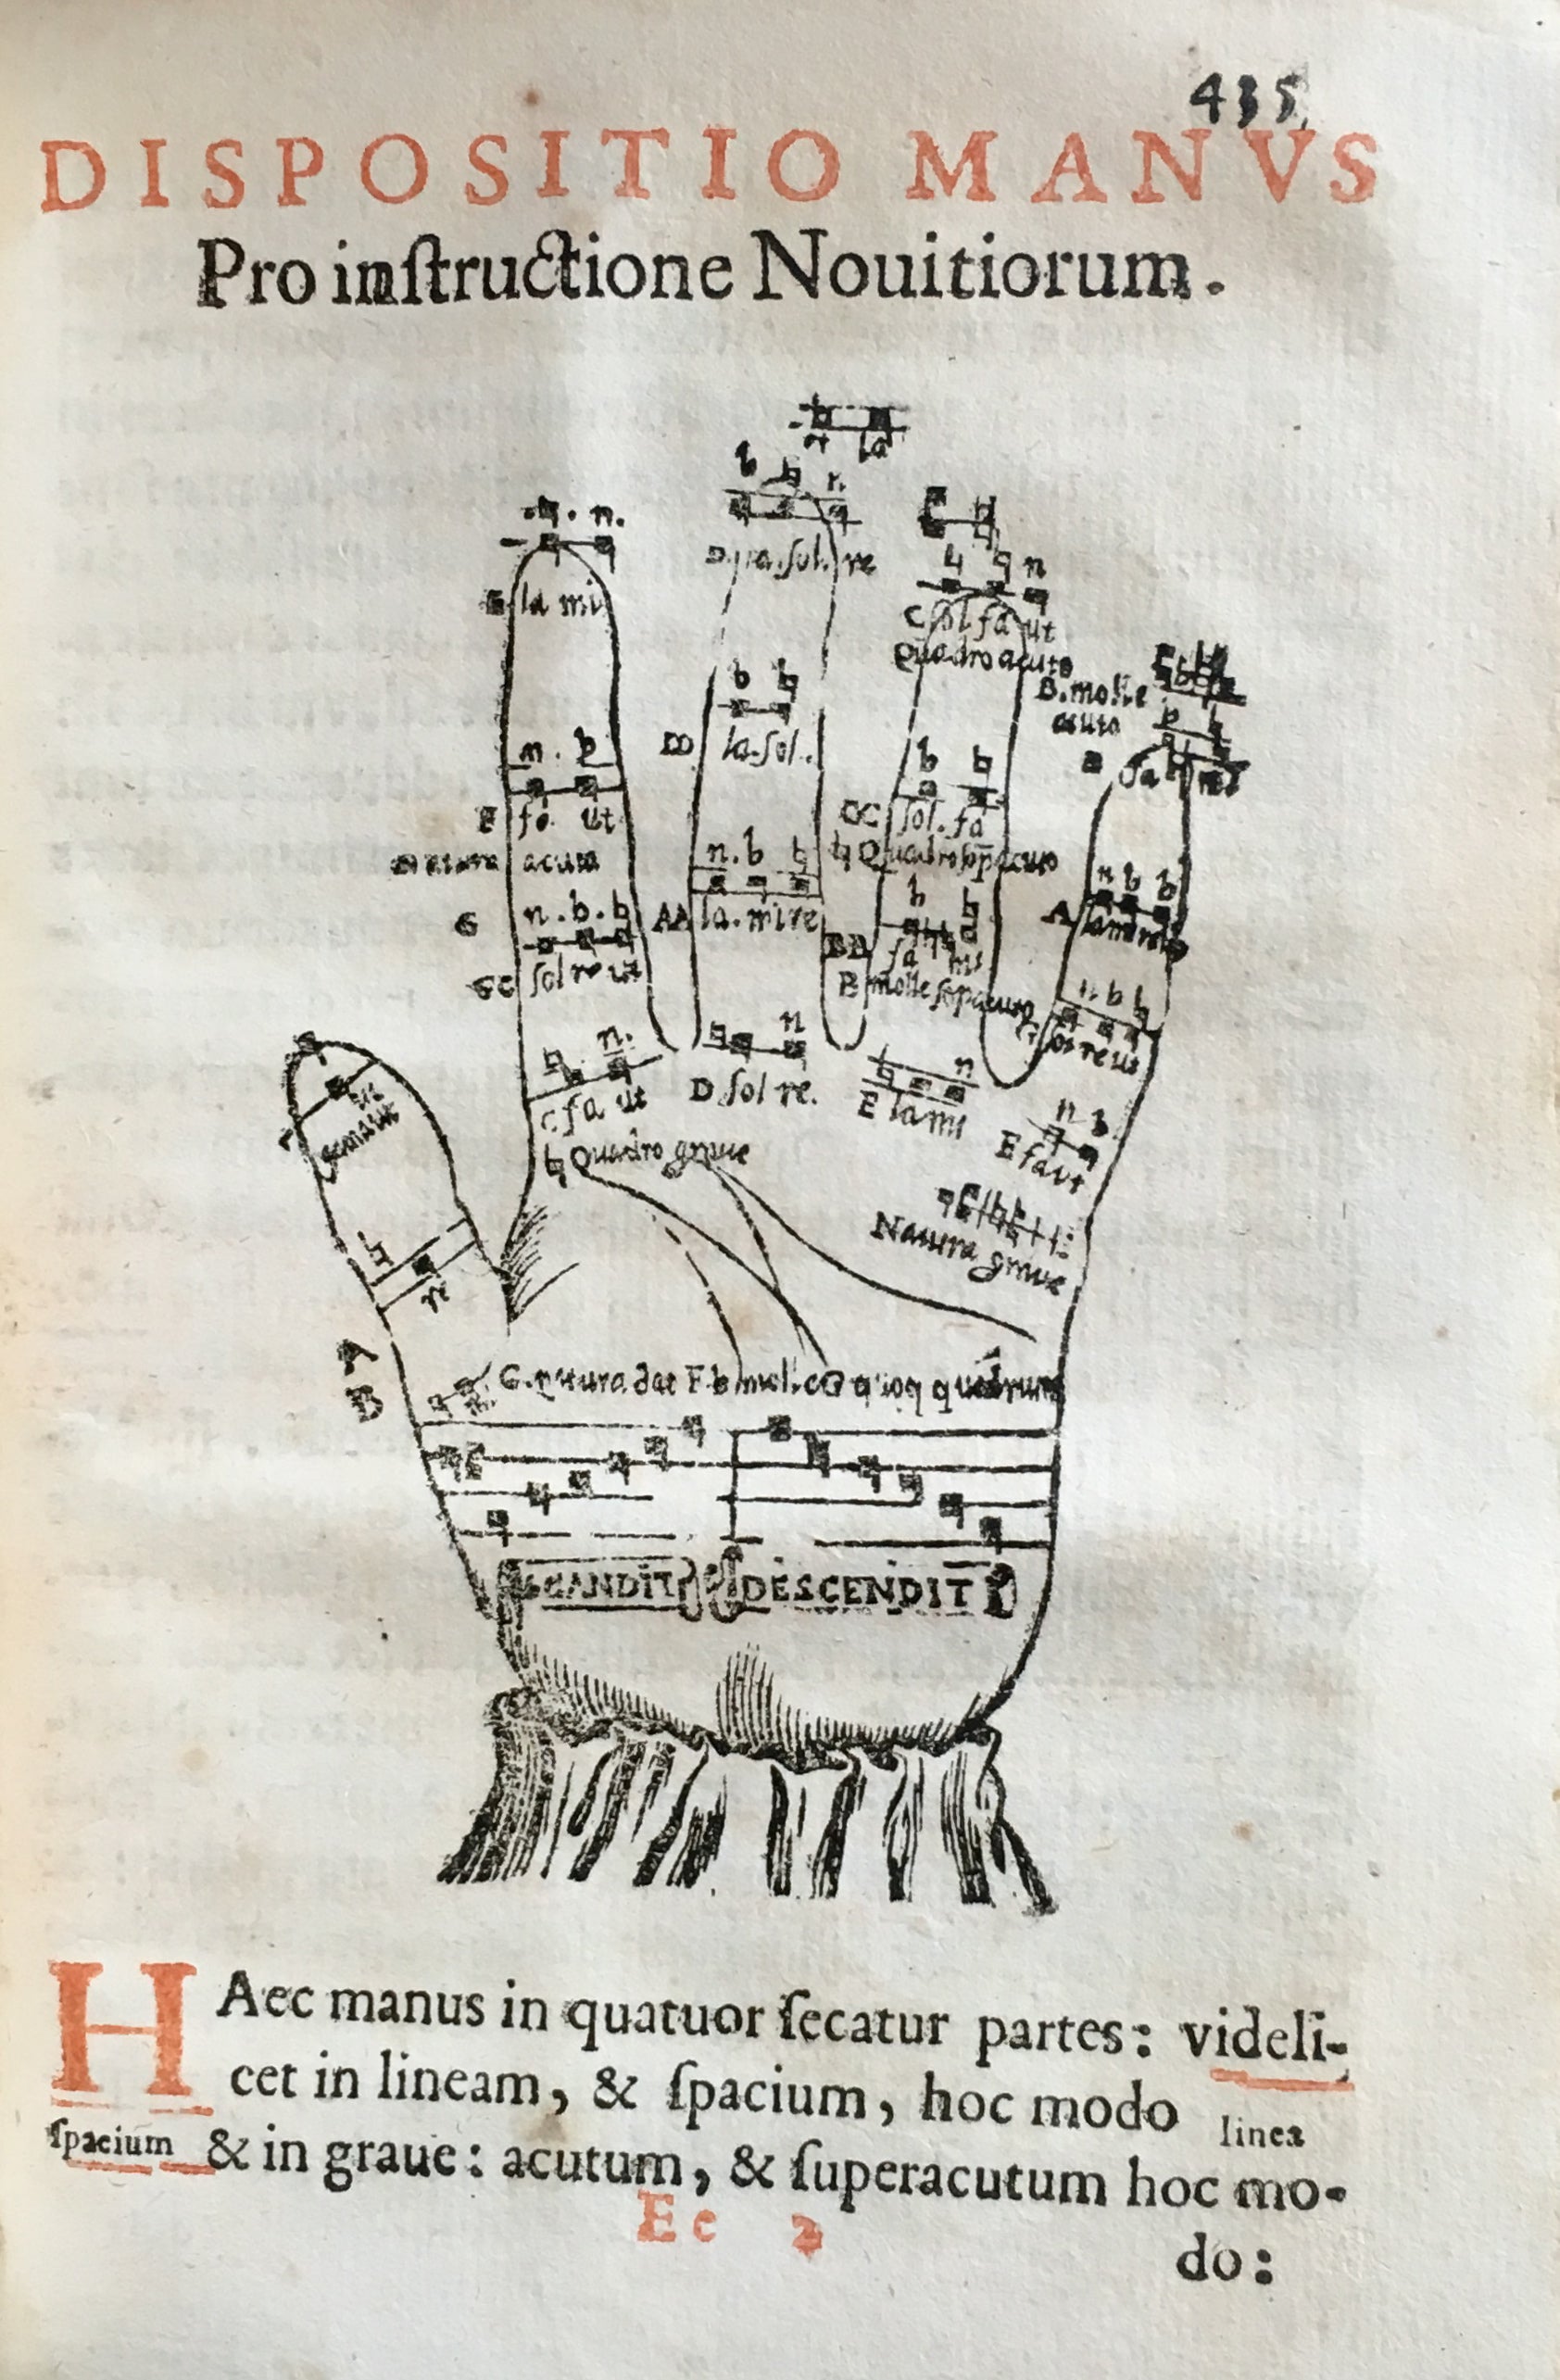 435
DISPOSITIO MANVS
Pro inſtructione Nouitiorum.
la
b ♮
D la. ſol. re
♮. n.
E la mi
♮ n
C ſol fa ut
Quadro acuto
B. molle
acuto
b ♮
DD la. ſol.
n. b
F fa ut
acuta
b ♮
CC ſol. fa
♮ Quadro
n. b ♮
AA la. mi re
n. b. ♮
G
ſol re ut
b ♮
BB fa mi
B molle
n b ♮
A la mi re
n b ♮
G ſol re ut
♮ n.
C fa ut
♮ Quadro graue
n
D ſol re.
♮ n
E la mi
n b
F fa ut
Natura graue
♮
re
A
B
C. natura dat F. b mol.
SCANDIT DESCENDIT
HAec manus in quatuor ſecatur partes: videli-
cet in lineam, & ſpacium, hoc modo linea
ſpacium & in graue: acutum, & ſuperacutum hoc mo-
Ee 2
do: